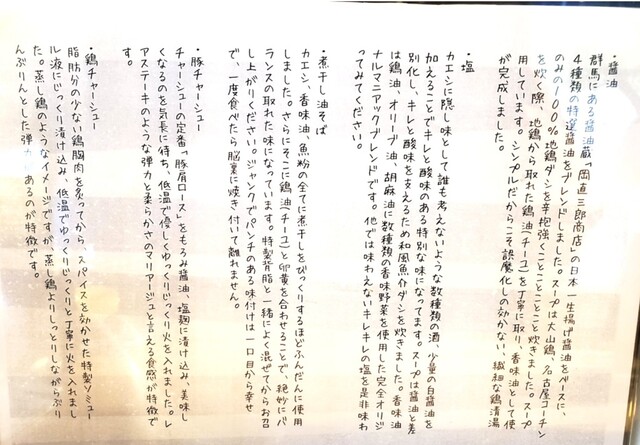 ・醤油
群馬にある醤油蔵「岡直三郎商店」の日本一生揚げ醤油をベースに、
4種類の特選醤油をブレンドしました。スープは大山鶏、名古屋コーチン
のみの100%地鶏ダシを辛抱強くことことことこと炊きました。スープ
を炊く際、地鶏から取れた鶏油(チーユ)を丁寧に取り、香味油として使
用しています。シンプルだからこそ誤魔化しの効かない、繊細な鶏清湯
が完成しました。
・塩
カエシに隠し味として誰も考えないような数種類の酒、少量の白醤油を
加えることでキレと酸味のある特別な味になってます。スープは醤油と差
別化し、キレと酸味を支えるため和風魚介ダシを炊きました。香味油
は鶏油、オリーブ油、胡麻油に数種類の香味野菜を使用した完全オリジ
ナルマニアックブレンドです。他では味わえないキレキレの塩を是非味わ
ってみてください。
・煮干し油そば
カエシ、香味油、魚粉の全てに煮干しをびっくりするほどふんだんに使用
しました。さらにそこに鶏油(チーユ)と卵黄を合わせることで、絶妙にバ
ランスの取れた味になっています。特製背脂と一緒によく混ぜてからお召
し上がりください。ジャンクでパンチのある味付けは一口目から幸せ
で、一度食べたら脳裏に焼き付いて離れません。
・豚チャーシュー
チャーシューの定番「豚肩ロース」をもろみ醤油、塩麹に漬け込み、美味し
くなるのを気長に待ち、低温で優しくゆっくりじっくり火を入れました。レ
アステーキのような弾力と柔らかさのマリアージュと言える食感が特徴で
す。
・鶏チャーシュー
脂肪分の少ない鶏胸肉を炙ってから、スパイスを効かせた特製ソミュー
ル液にじっくり漬け込み、低温でゆっくりじっくりと丁寧に火を入れまし
た。蒸し鶏のようなイメージですが、蒸し鶏よりしっとりしながらぷり
んぷりんとした弾力があるのが特徴です。